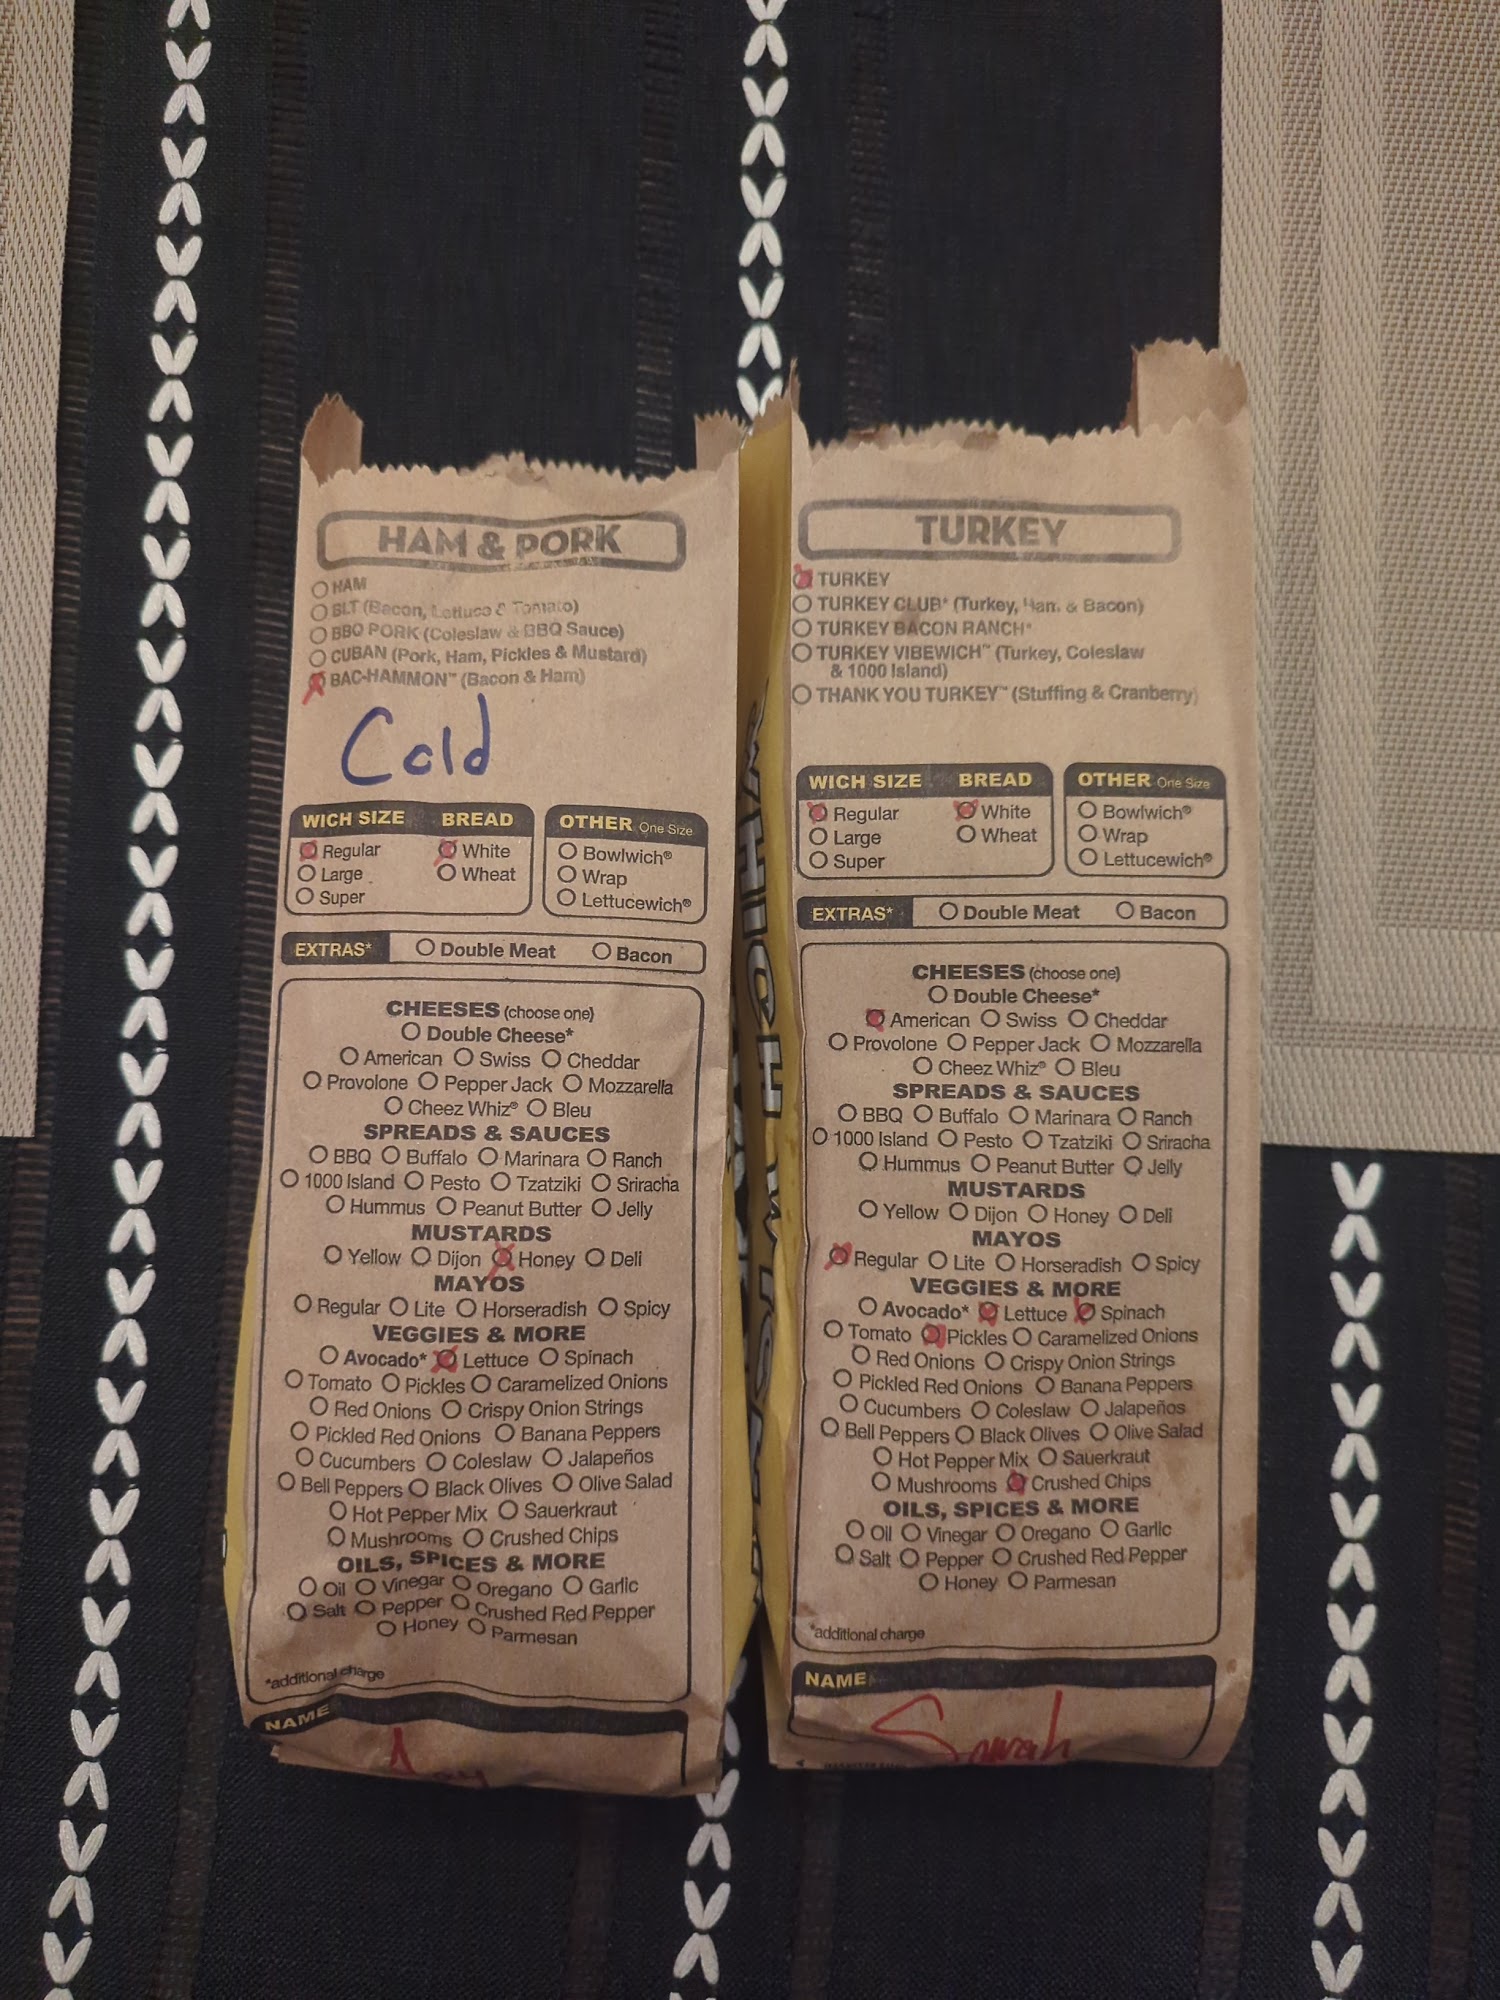 HAM & PORK
HAM
BLT (Bacon, Lettuce & Tomato)
BBQ PORK (Coleslaw & BBQ Sauce)
CUBAN (Pork, Ham, Pickles & Mustard)
BAC-HAMMON™ (Bacon & Ham)
Cold
WICH SIZE BREAD
Regular White
Large Wheat
Super
OTHER One Size
Bowlwich®
Wrap
Lettucewich®
EXTRAS* Double Meat Bacon
CHEESES (choose one)
Double Cheese*
American Swiss Cheddar
Provolone Pepper Jack Mozzarella
Cheez Whiz® Bleu
SPREADS & SAUCES
BBQ Buffalo Marinara Ranch
1000 Island Pesto Tzatziki Sriracha
Hummus Peanut Butter Jelly
MUSTARDS
Yellow Dijon Honey Deli
MAYOS
Regular Lite Horseradish Spicy
VEGGIES & MORE
Avocado* Lettuce Spinach
Tomato Pickles Caramelized Onions
Red Onions Crispy Onion Strings
Pickled Red Onions Banana Peppers
Cucumbers Coleslaw Jalapeños
Bell Peppers Black Olives Olive Salad
Hot Pepper Mix Sauerkraut
Mushrooms Crushed Chips
OILS, SPICES & MORE
Oil Vinegar Oregano Garlic
Salt Pepper Crushed Red Pepper
Honey Parmesan
*additional charge
NAME
WHICH WICH
TURKEY
TURKEY
TURKEY CLUB* (Turkey, Ham & Bacon)
TURKEY BACON RANCH*
TURKEY VIBEWICH™ (Turkey, Coleslaw
& 1000 Island)
THANK YOU TURKEY™ (Stuffing & Cranberry)
WICH SIZE BREAD
Regular White
Large Wheat
Super
OTHER One Size
Bowlwich®
Wrap
Lettucewich®
EXTRAS* Double Meat Bacon
CHEESES (choose one)
Double Cheese*
American Swiss Cheddar
Provolone Pepper Jack Mozzarella
Cheez Whiz® Bleu
SPREADS & SAUCES
BBQ Buffalo Marinara Ranch
1000 Island Pesto Tzatziki Sriracha
Hummus Peanut Butter Jelly
MUSTARDS
Yellow Dijon Honey Deli
MAYOS
Regular Lite Horseradish Spicy
VEGGIES & MORE
Avocado* Lettuce Spinach
Tomato Pickles Caramelized Onions
Red Onions Crispy Onion Strings
Pickled Red Onions Banana Peppers
Cucumbers Coleslaw Jalapeños
Bell Peppers Black Olives Olive Salad
Hot Pepper Mix Sauerkraut
Mushrooms Crushed Chips
OILS, SPICES & MORE
Oil Vinegar Oregano Garlic
Salt Pepper Crushed Red Pepper
Honey Parmesan
*additional charge
NAME
Sarah